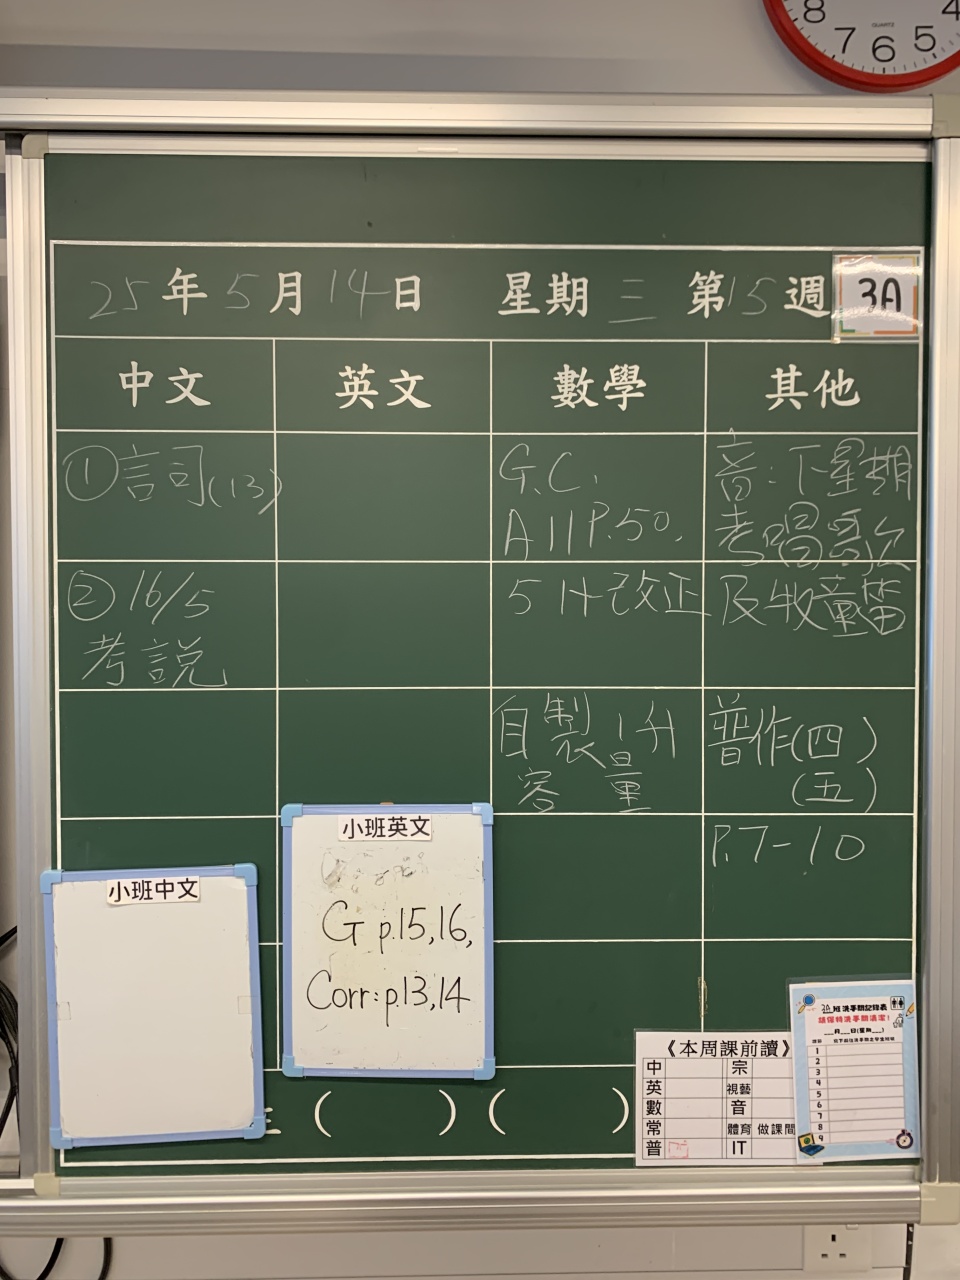 8 7 6 5 4
QUARTZ
25年5月14日 星期三 第15週 3A
中文 英文 數學 其他
①詞(13)
G.C.
A11 P.50,
音:下星期
考唱歌
及牧童笛
②16/5
考説
5H改正
自製1升
容量
普作(四)
(五)
P.7-10
小班英文
G p.15,16,
Corr:p.13,14
小班中文
( ) ( )
《本周課前讀》
中 宗
英 視藝
數 音
常 體育 做課間
普 IT
3A班洗手間記錄表
請保持洗手間清潔!
___月___日(星期___)
1
2
3
4
5
6
7
8
9